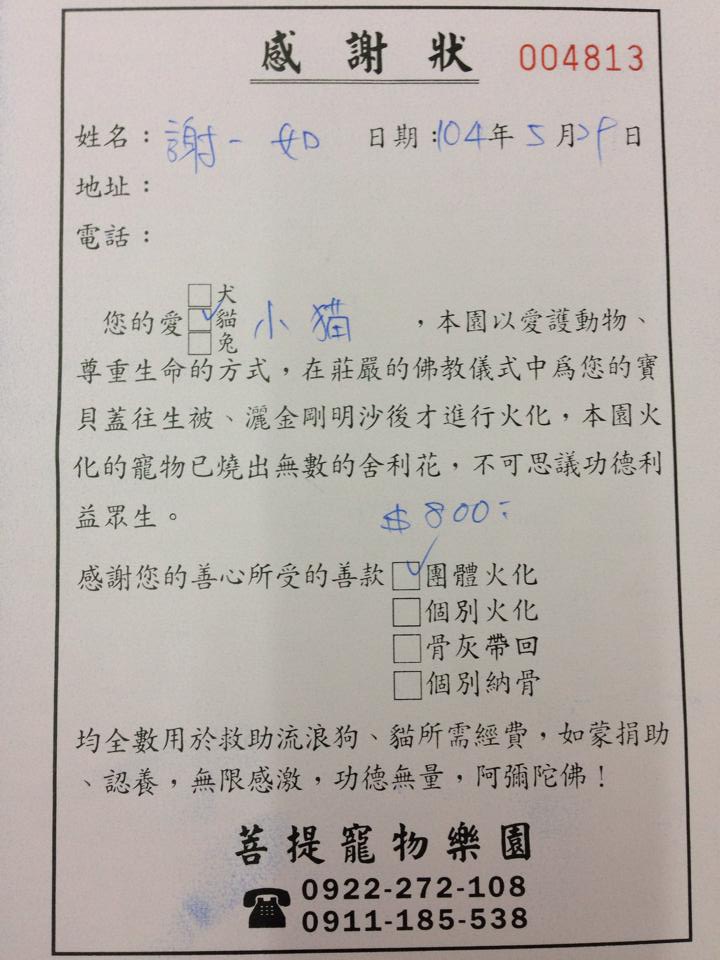 感謝狀 004813
姓名：謝一如 日期：104年5月29日
地址：
電話：
您的愛□犬□貓□兔 小貓 ，本園以愛護動物、
尊重生命的方式，在莊嚴的佛教儀式中為您的寶
貝蓋往生被、灑金剛明沙後才進行火化，本園火
化的寵物已燒出無數的舍利花，不可思議功德利
益眾生。
$800：
感謝您的善心所受的善款□團體火化
□個別火化
□骨灰帶回
□個別納骨
均全數用於救助流浪狗、貓所需經費，如蒙捐助
、認養，無限感激，功德無量，阿彌陀佛！
菩提寵物樂園
0922-272-108
0911-185-538